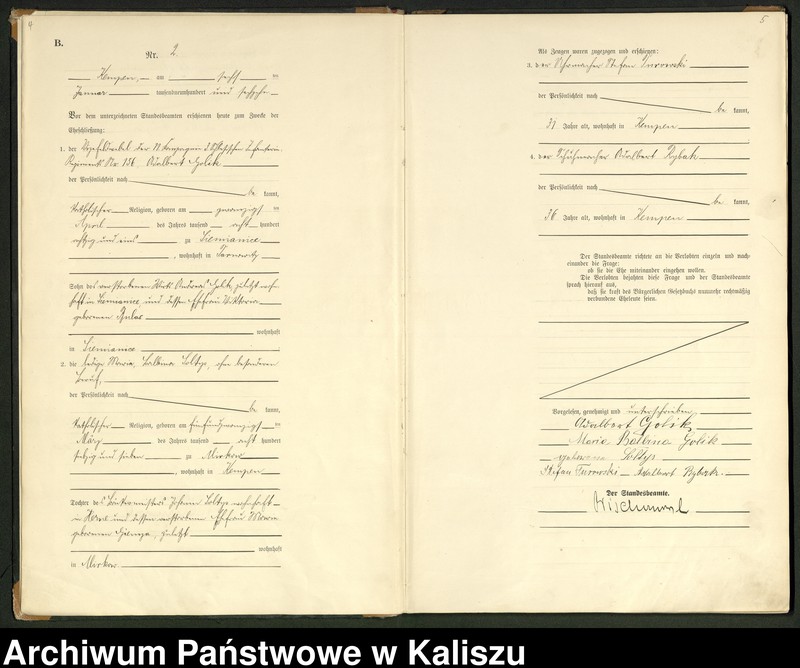 4
B.
Nr. 2
Kempen, am sechs ten
Januar tausendneunhundert und sechzehn
Vor dem unterzeichneten Standesbeamten erschienen heute zum Zwecke der
Eheschließung:
1. der Vizefeldwebel der 11. Kompagnie Infanterie
Regiments No. 156 Adalbert Golik
der Persönlichkeit nach
be kannt,
katholischer Religion, geboren am zwanzigsten
April des Jahres tausend acht hundert
achtzig und eins zu Siemianice
, wohnhaft in Tarnowitz
Sohn des verstorbenen Wirt Andreas Golik, zuletzt wohn-
haft in Siemianice und dessen Ehefrau Viktoria
geborenen
wohnhaft
in Siemianice
2. die ledige Maria Balbina Soltys, ohne besonderen
Beruf,
der Persönlichkeit nach
be kannt,
katholischer Religion, geboren am fünfundzwanzigsten
März des Jahres tausend acht hundert
siebzig und sieben zu Mirkow
, wohnhaft in Kempen
Tochter des Johann Soltys wohnhaft
in und dessen verstorbenen Ehefrau Maria
geborenen zuletzt
wohnhaft
in Mirkow.
5
Als Zeugen waren zugezogen und erschienen:
3. der Uhrmacher Stefan Turowski
der Persönlichkeit nach
be kannt,
31 Jahre alt, wohnhaft in Kempen
4. der Schuhmacher Adalbert Rybak
der Persönlichkeit nach
be kannt,
36 Jahre alt, wohnhaft in Kempen
Der Standesbeamte richtete an die Verlobten einzeln und nach-
einander die Frage:
ob sie die Ehe miteinander eingehen wollen.
Die Verlobten bejahten diese Frage und der Standesbeamte
sprach hierauf aus,
daß sie kraft des Bürgerlichen Gesetzbuchs nunmehr rechtmäßig
verbundene Eheleute seien.
Vorgelesen, genehmigt und unterschrieben
Adalbert Golik
Maria Balbina Golik
geborene Soltys
Stefan Turowski Adalbert Rybak
Der Standesbeamte.
Archiwum Państwowe w Kaliszu